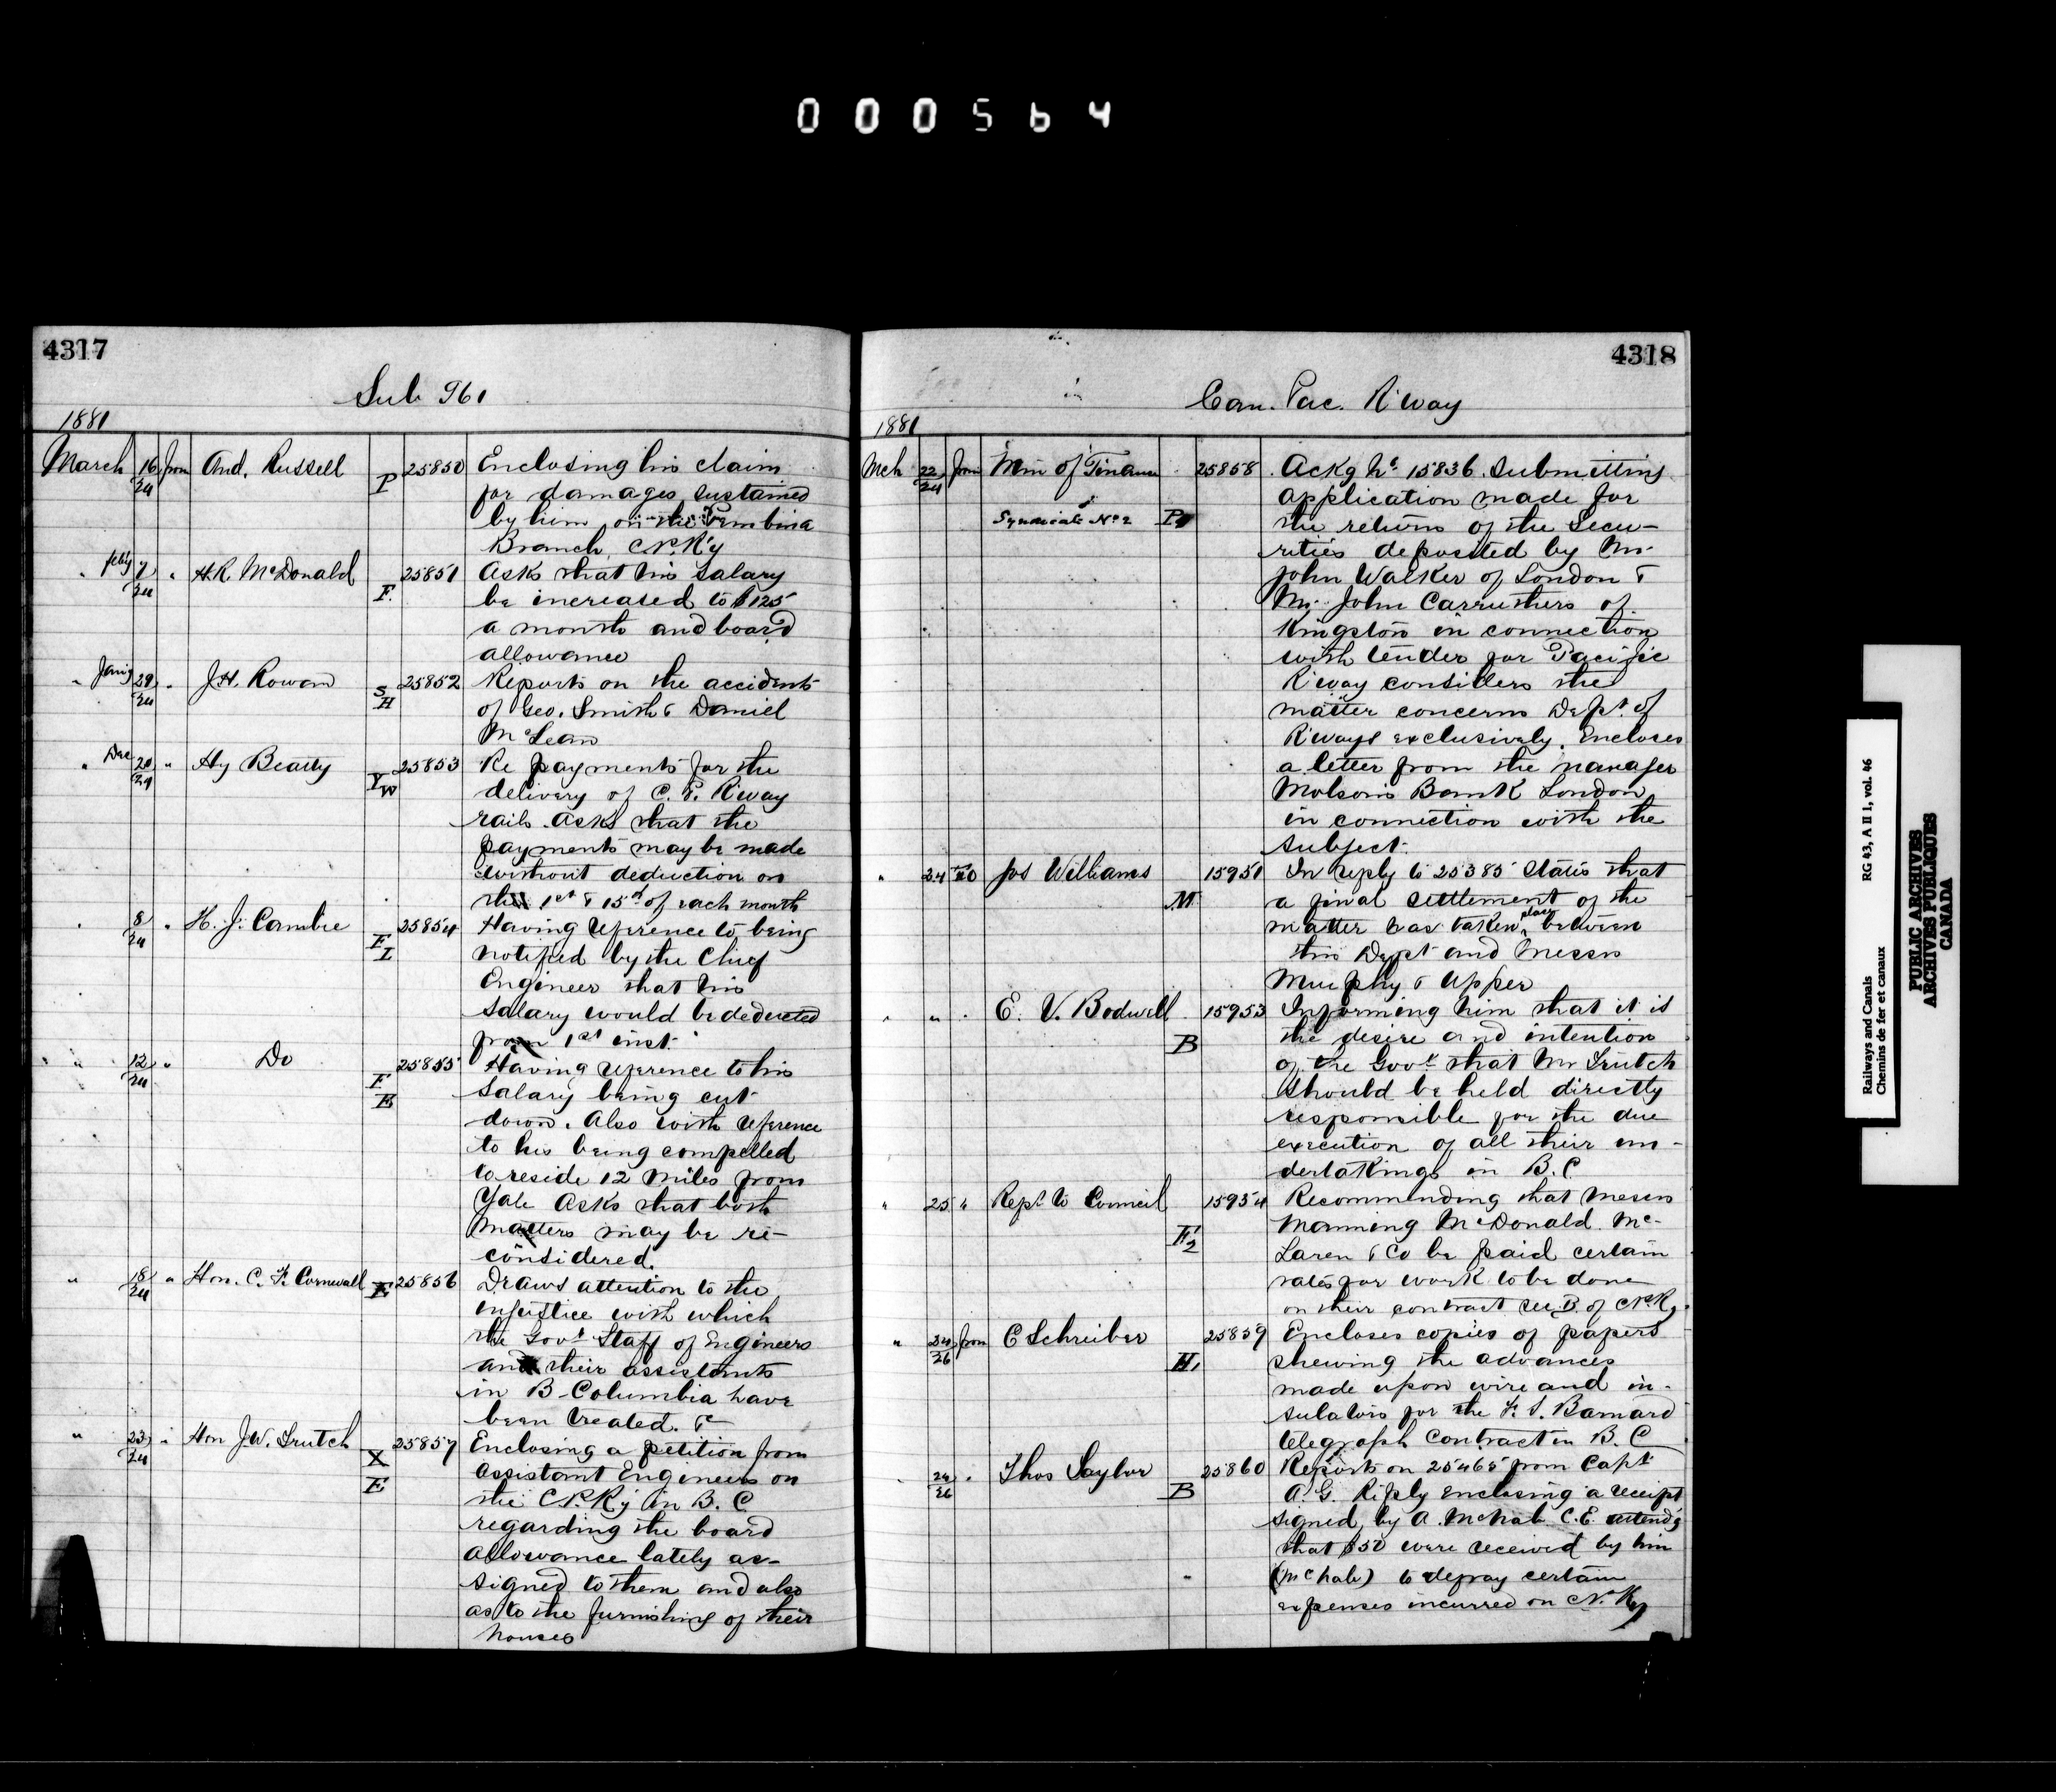 000564
4317
Sub 961
1881
March 16/24 from And. Russell P 25850 Enclosing his claim
for damages sustained
by him on the Pembina
Branch, C.P.R'y
" feb'y 7/24 " H.R. McDonald F. 25851 Asks that his salary
be increased to $125
a month and board
allowance
" Jan'y 29/24 " J.H. Rowan S H 25852 Reports on the accidents
of Geo. Smith & Daniel
McLean
" Dec 20/24 " Hy Beatty Y W 25853 Re payments for the
delivery of C. P. R'way
rails. Asks that the
payments may be made
without deduction on
the 1st & 15th of each month
" 8/24 " H. J. Cambie F I 25854 Having reference to being
notified by the Chief
Engineer that his
salary would be deducted
from 1st inst.
" 12/24 " Do F E 25855 Having reference to his
salary being cut
down. Also with reference
to his being compelled
to reside 12 miles from
Yale Asks that both
matters may be re-
considered.
" 18/24 " Hon. C. F. Cornwall E 25856 Draws attention to the
injustice with which
the Govt Staff of Engineers
and their assistants
in B. Columbia have
been treated. &c
" 23/24 " Hon J.W. Trutch X E 25857 Enclosing a petition from
Assistant Engineers on
the C.P.R'y in B. C
regarding the board
allowance lately as-
signed to them and also
as to the furnishing of their
houses
4318
Can. Pac. R'way
1881
Mch 22/24 from Min of Finance 25858 Ackg No 15836. Submitting
application made for
Syndicate No 2 P the return of the Secu-
rities deposited by Mr.
John Walker of London &
Mr. John Carruthers of
Kingston in connection
with tender for Pacific
R'way considers the
matter concerns Dept. of
R'ways exclusively. Encloses
a letter from the manager
Molson's Bank London
in connection with the
subject.
" 24 to Jos Williams M 15951 In reply to 25385 states that
a final settlement of the
matter has taken place between
this Dept and Messrs
Murphy & Upper
" " " E. V. Bodwell B 15953 Informing him that it is
the desire and intention
of the Govt that Mr Trutch
should be held directly
responsible for the due
execution of all their un-
dertakings in B.C.
" 25 " Rept to Council F2 15954 Recommending that Messrs
Manning McDonald Mc-
Laren & Co be paid certain
rates for work to be done
on their contract sec. B. of C.P.R'y.
" 24/26 from C Schreiber H, 25859 Encloses copies of papers
shewing the advances
made upon wire and in-
sulators for the F. J. Barnard
telegraph contract in B. C
" 24/26 " Thos Taylor B 25860 Reports on 25465 from Capt
A. G. Ripley enclosing a receipt
signed by A. McNab C.E. attend'g
that $50 were received by him
(McNab) to defray certain
expenses incurred on C.P.R'y
Railways and Canals RG 43, A II 1, vol. 46
Chemins de fer et canaux
PUBLIC ARCHIVES
ARCHIVES PUBLIQUES
CANADA